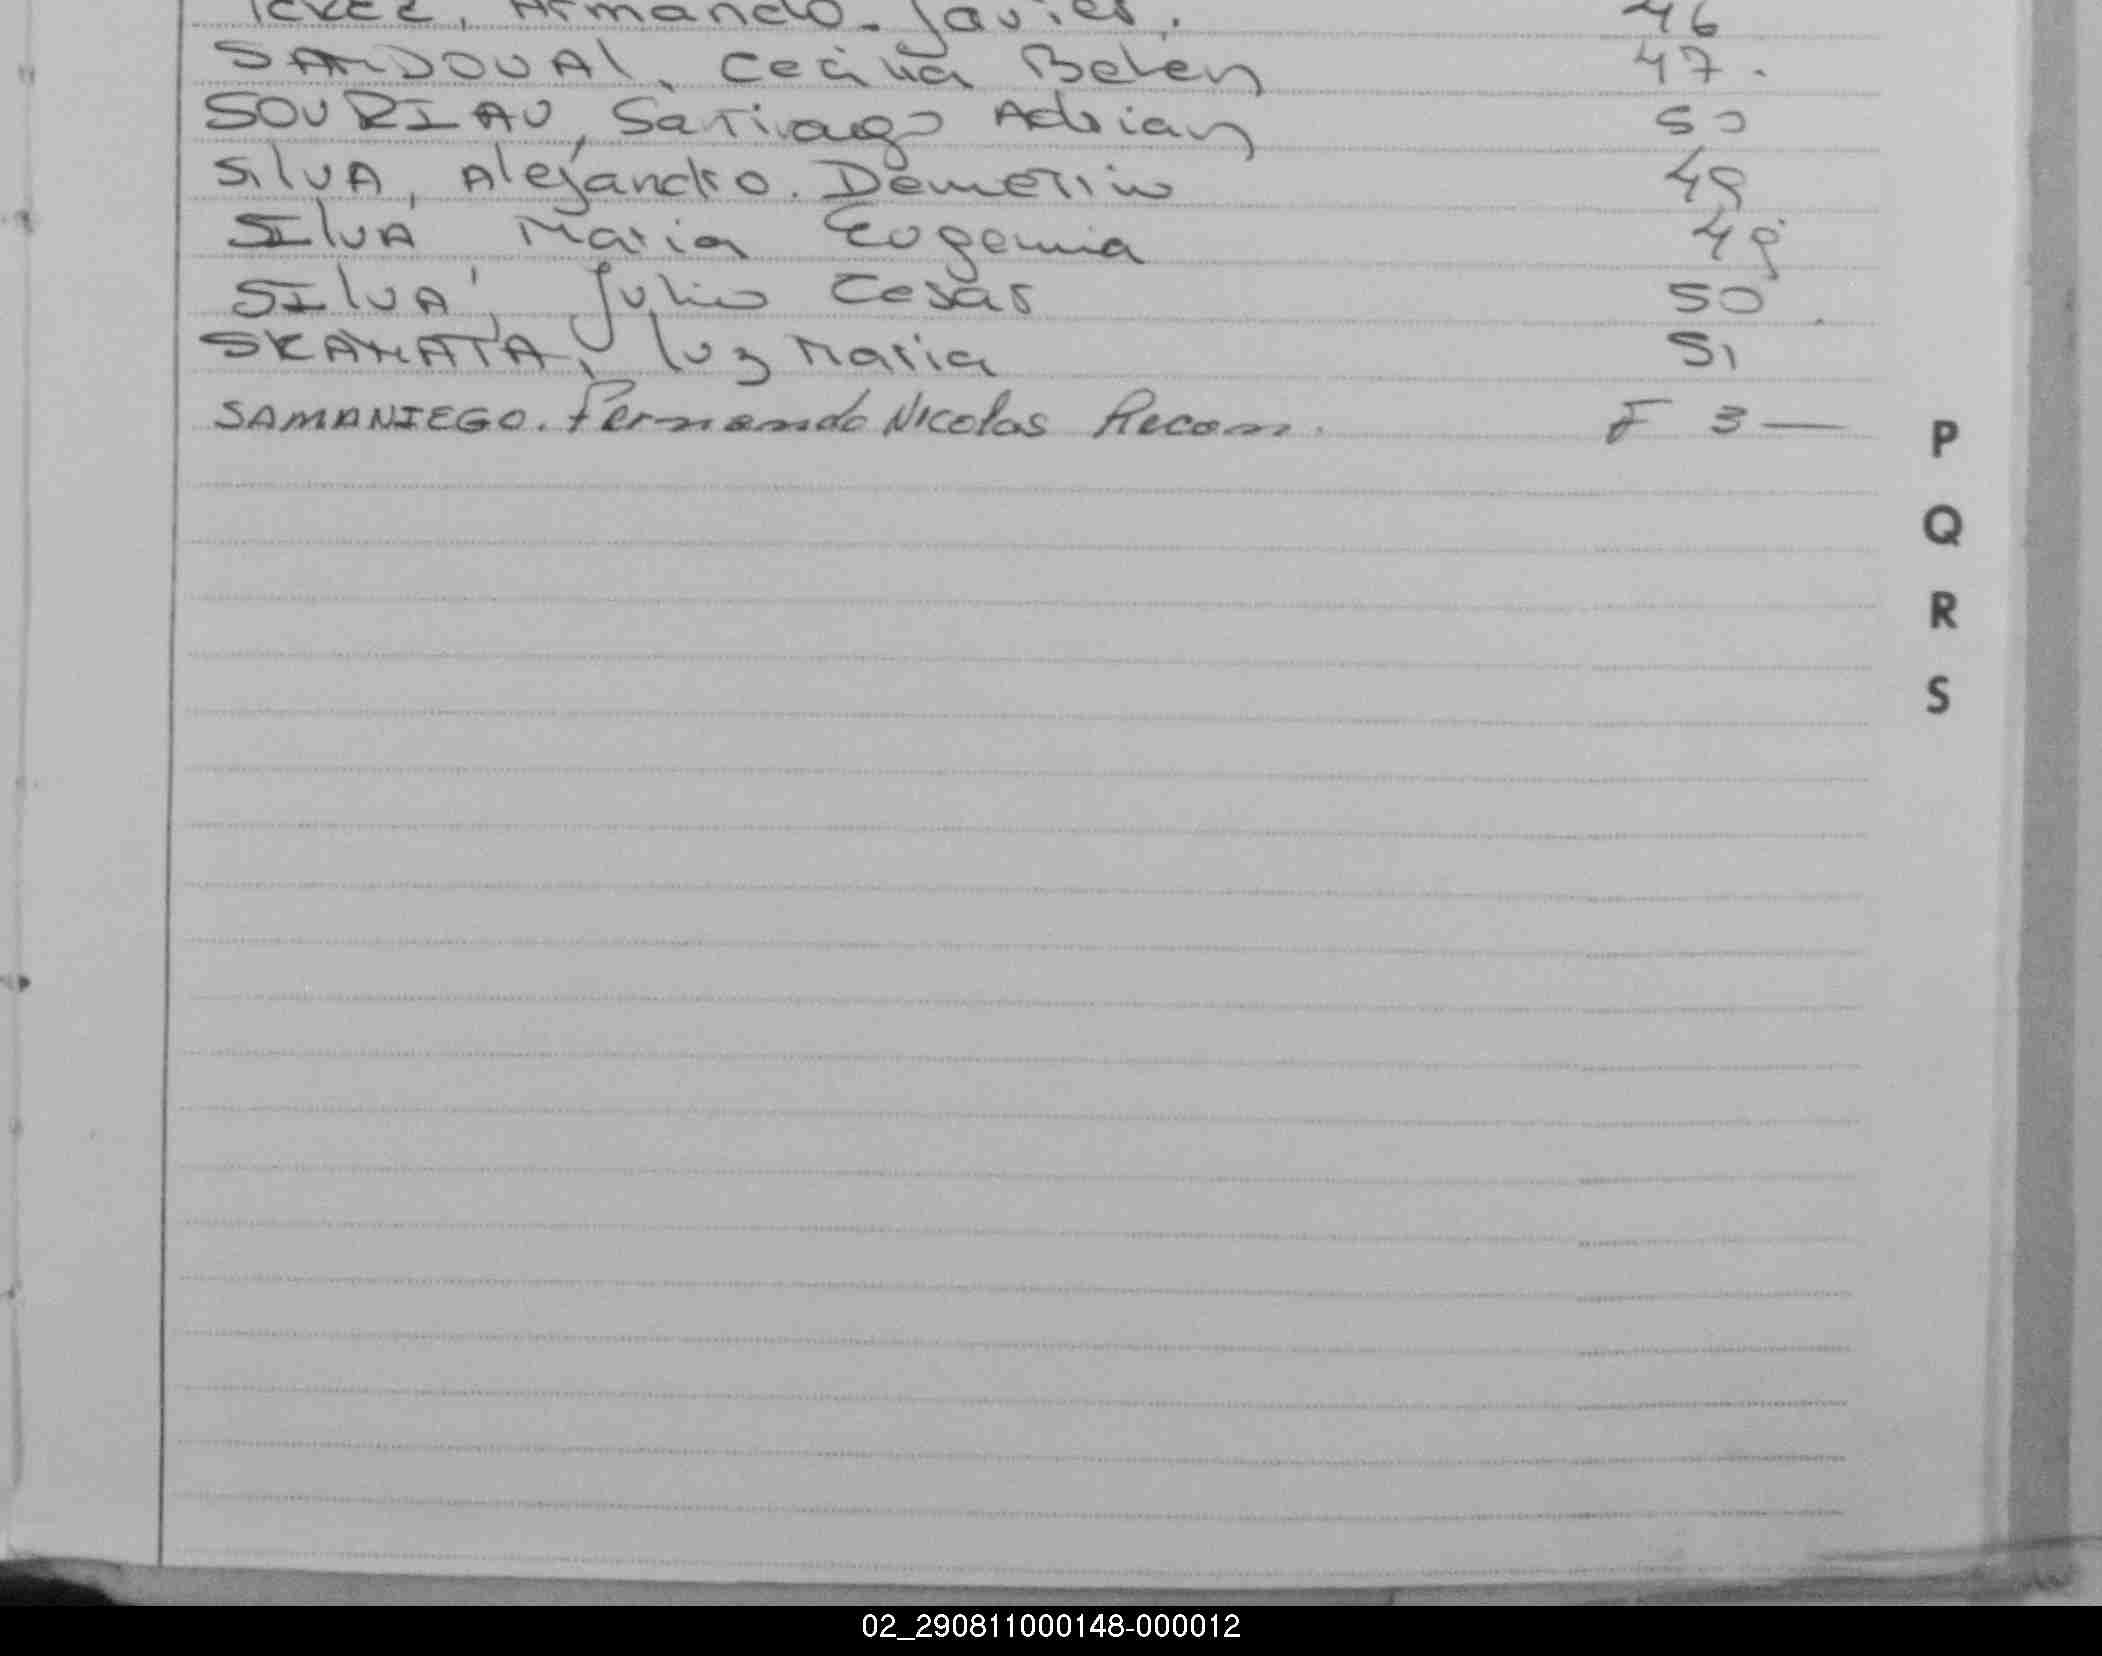 Armando Javier. 46
SANDOVAl, Cecilia Belen 47.
SOURIAU, Santiago Adrian 50
SilVA, Alejandro. Demetrio 49
SIlVA Maria Eugenia 49
SIlVA, Julio Cesar 50
SKAMATA, luz Maria 51
SAMANIEGO. Fernando Nicolas Recon. F 3 —
P
Q
R
S
02_290811000148-000012